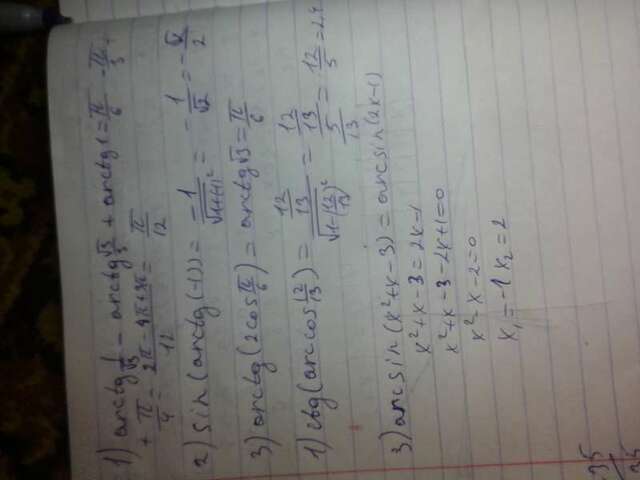 1) arctg 1/√3 − arctg √3 + arctg 1 = π/6 − π/3 +
+ π/4 = 2π − 4π + 3π / 12 = π/12
2) sin(arctg(−1)) = −1/√(1+(−1)²) = −1/√2 = −√2/2
3) arctg(2cos π/6) = arctg √3 = π/6
1) ctg(arccos 12/13) = 12/13 / √(1−(12/13)²) = 12/13 / 5/13 = 12/5 = 2,4
3) arcsin(x²+x−3) = arcsin(2x−1)
x²+x−3 = 2x−1
x²+x−3−2x+1=0
x²−x−2=0
x₁=−1 x₂=2